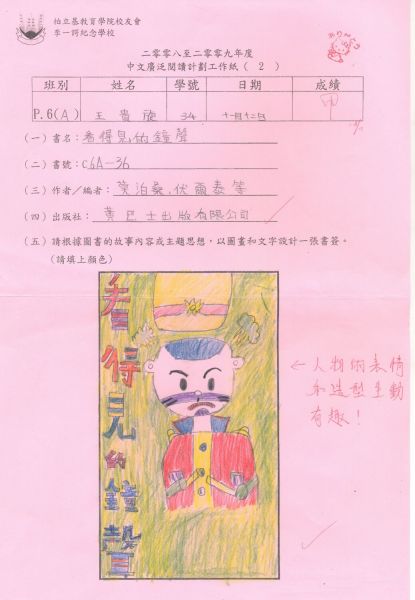 柏立基教育學院校友會
李一諤紀念學校
二零零八至二零零九年度
中文廣泛閱讀計劃工作紙（2）
班別 姓名 學號 日期 成績
P.6(A) 王貴 34 十一月十二日 甲
（一）書名：看得見的鐘聲
（二）書號：C6A-36
（三）作者/編者：莫泊桑,伏爾泰等
（四）出版社：黃巴士出版有限公司
（五）請根據圖書的故事內容或主題思想，以圖畫和文字設計一張書簽。
（請填上顏色）
看得見的鐘聲
←人物的表情
和造型生動
有趣！